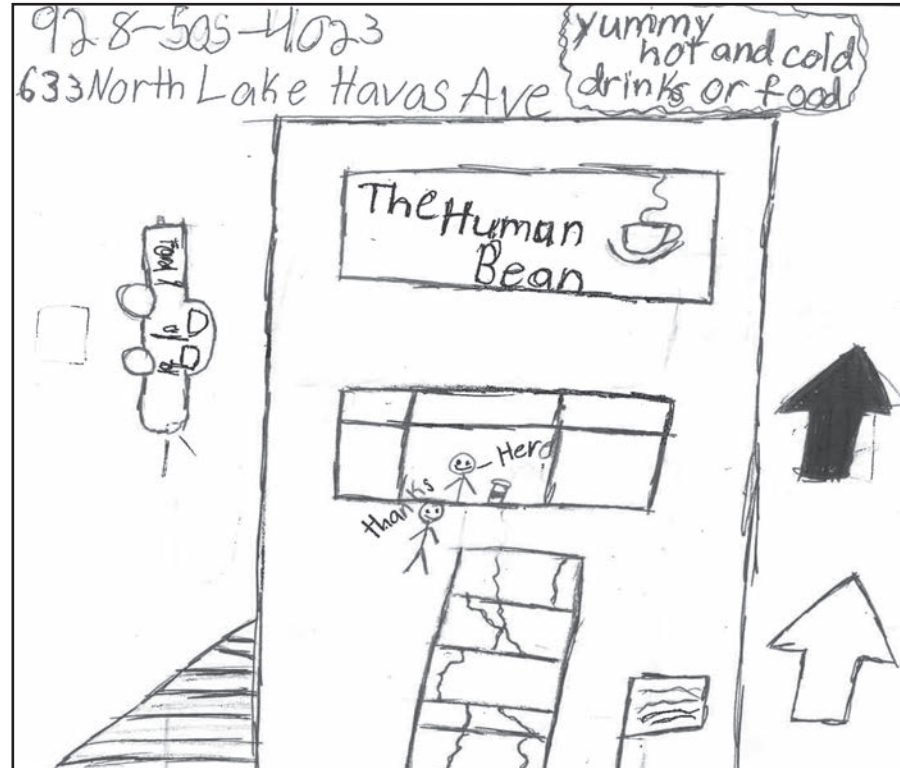 928-505-4023
633 North Lake Havas Ave
yummy
hot and cold
drinks or food
The Human
Bean
Here
thanks